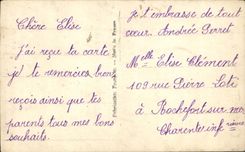 Chère Elise
J'ai reçu ta carte
je te remercies bien
reçois ainsi que tes
parents tous mes bons
souhaits.
je t'embrasse de tout
cœur. Andrée Perret
Melle Elise Clément
109 rue Pierre Loti
à Rochefort sur mer
Charente infrieure